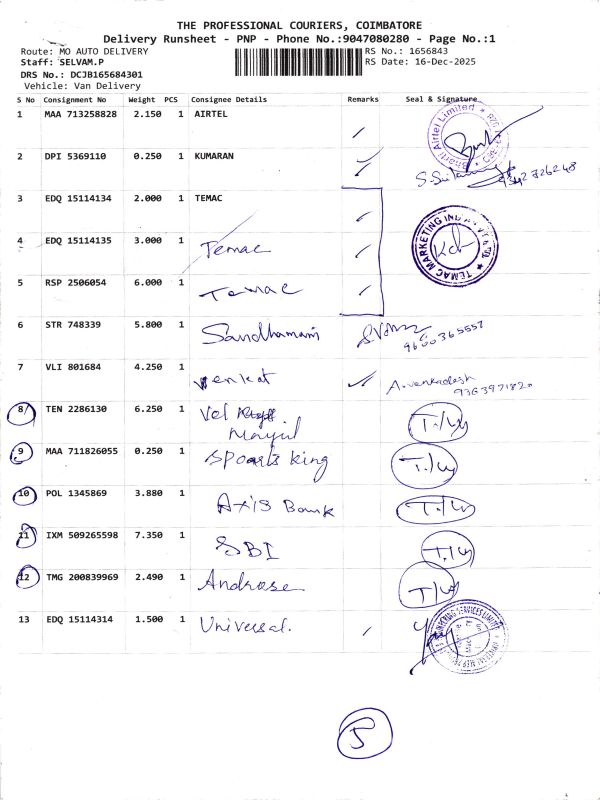 THE PROFESSIONAL COURIERS, COIMBATORE
Delivery Runsheet - PNP - Phone No.:9047080280 - Page No.:1
Route: MO AUTO DELIVERY RS No.: 1656843
Staff: SELVAM.P RS Date: 16-Dec-2025
DRS No.: DCJB165684301
Vehicle: Van Delivery
S No Consignment No Weight PCS Consignee Details Remarks Seal & Signature
1 MAA 713258828 2.150 1 AIRTEL
Bharti Airtel Limited
2 DPI 5369110 0.250 1 KUMARAN
3 EDQ 15114134 2.000 1 TEMAC
TEMAC MARKETING
4 EDQ 15114135 3.000 1 Temac
5 RSP 2506054 6.000 1 Temac
6 STR 748339 5.800 1 Sandhamani
9600365557
7 VLI 801684 4.250 1 venkat A.venkadesh
9363971820
8 TEN 2286130 6.250 1 Vel T./Ly
Mayil
9 MAA 711826055 0.250 1 Spoarts king T./Ly
10 POL 1345869 3.880 1 Axis Bank T./Ly
11 IXM 509265598 7.350 1 SBI T./Ly
12 TMG 200839969 2.490 1 Androse T/Ly
13 EDQ 15114314 1.500 1 Universal.
5